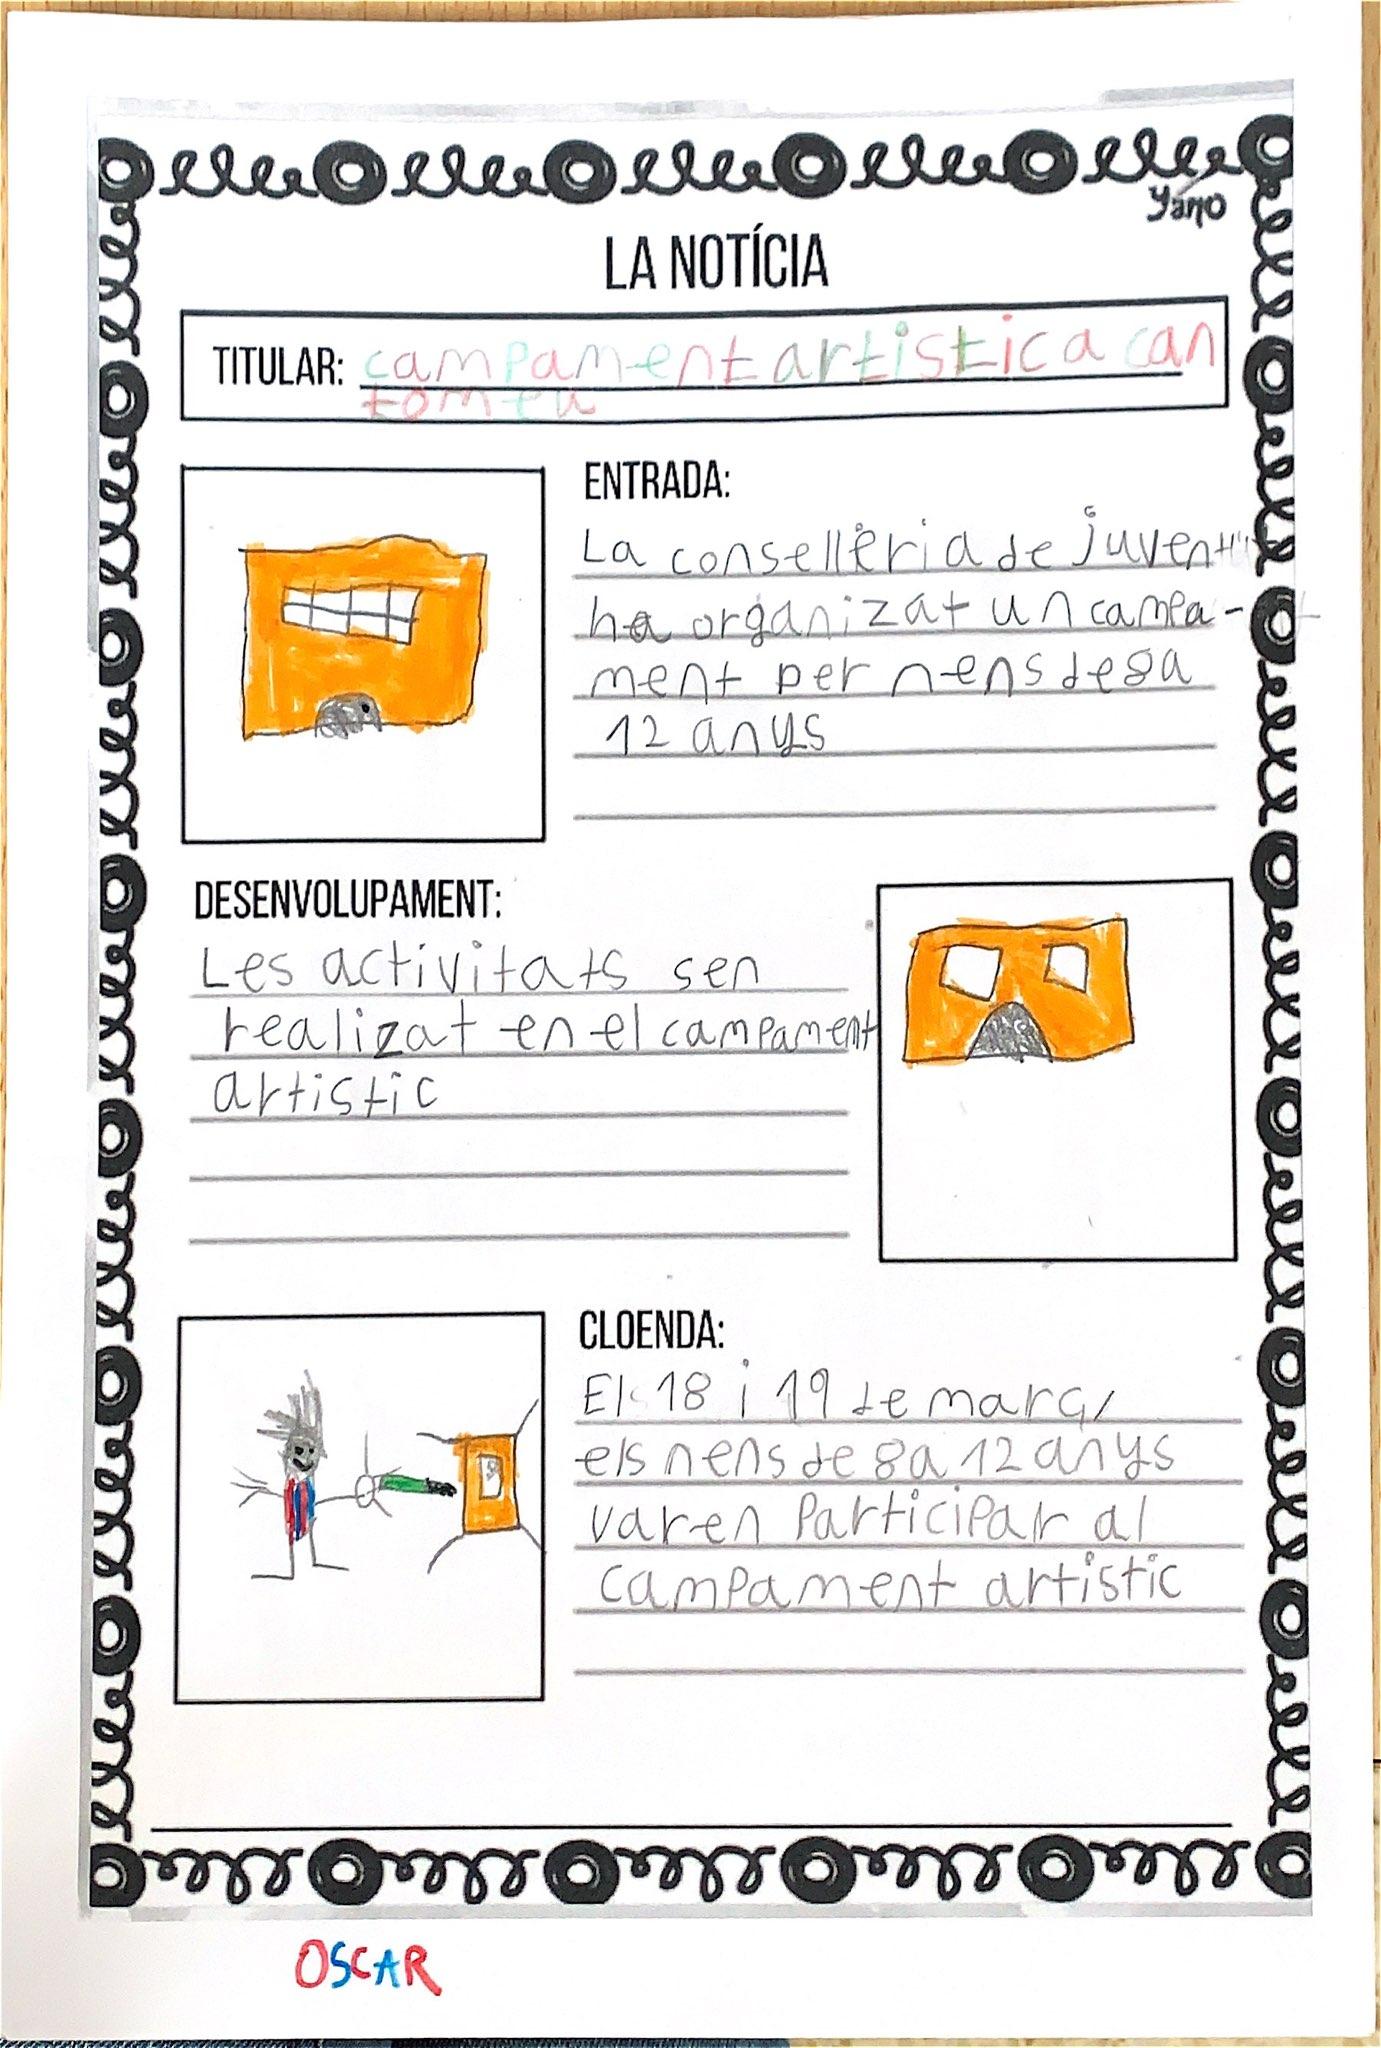 yano
LA NOTÍCIA
TITULAR: campament artistic a can
tomeu
ENTRADA:
La conselleria de juventu
ha organizat un campa-
ment per nens de 8 a
12 anys
DESENVOLUPAMENT:
Les activitats sen
realizat en el campament
artistic
CLOENDA:
El 18 i 19 de març,
els nens de 8 a 12 anys
varen participar al
campament artistic
OSCAR